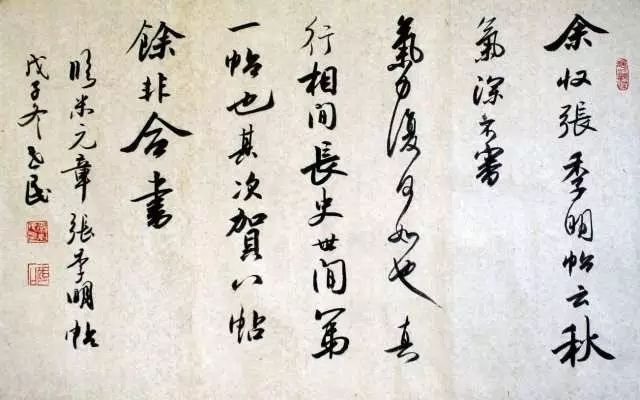 余收張季明帖云秋
氣深不審
氣力復何如也真
行相間長史世間第
一帖也其次賀八帖
餘非合書
臨米元章張季明帖
戊子冬志民